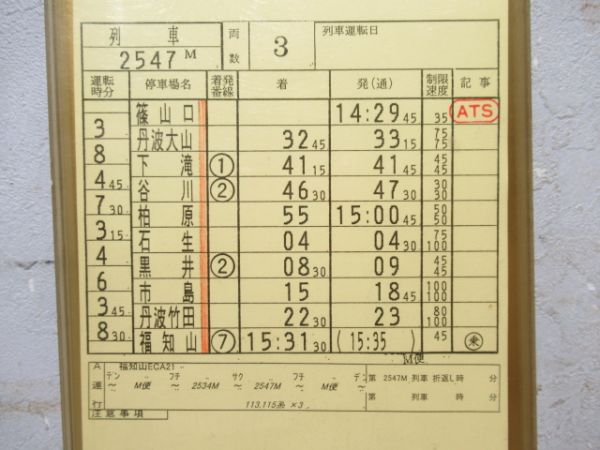 列車 両数 3 列車運転日
2547M
運転時分 停車場名 着発番線 着 発(通) 制限速度 記事
篠山口 14:29 45 35 ATS
3
丹波大山 32 45 33 15 75 75
8
下滝 ① 41 15 41 45 45 45
4 45
谷川 ② 46 30 47 30 30 30
7 30
柏原 55 15:00 45 50 50
3 15
石生 04 04 30 75 100
4
黒井 ② 08 30 09 45 45
6
市島 15 18 45 100 100
3 45
丹波竹田 22 30 23 80 100
8 30
福知山 ⑦ 15:31 30 (15:35) 45 乗
M便
A 福知山ECA21
運行 デン フチ サク フチ デン
〜 M便 〜 2534M 〜 2547M 〜 M便 〜
113,115系 ×3
第 2547M 列車 折返し 時 分
第 列車 時 分
注意事項